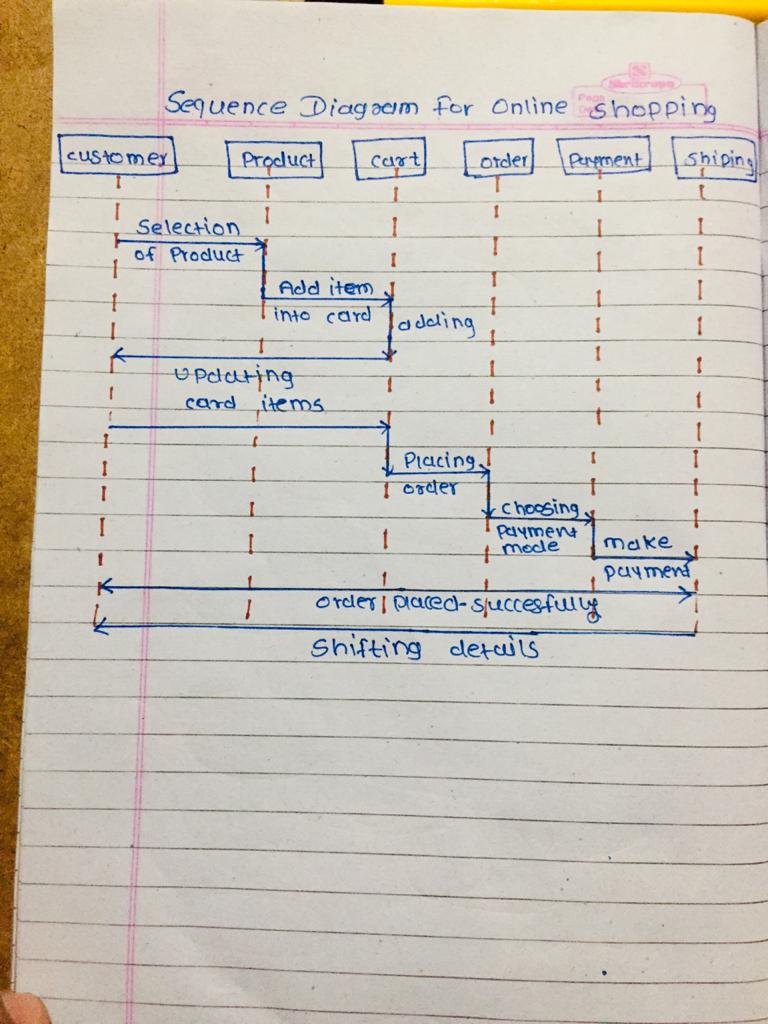 Sequence Diagram for Online Shopping
customer Product cart order Payment shiping
Selection
of Product
Add item
into card
adding
updating
card items
Placing
order
choosing
Payment
mode
make
payment
order placed-succesfully
Shifting details